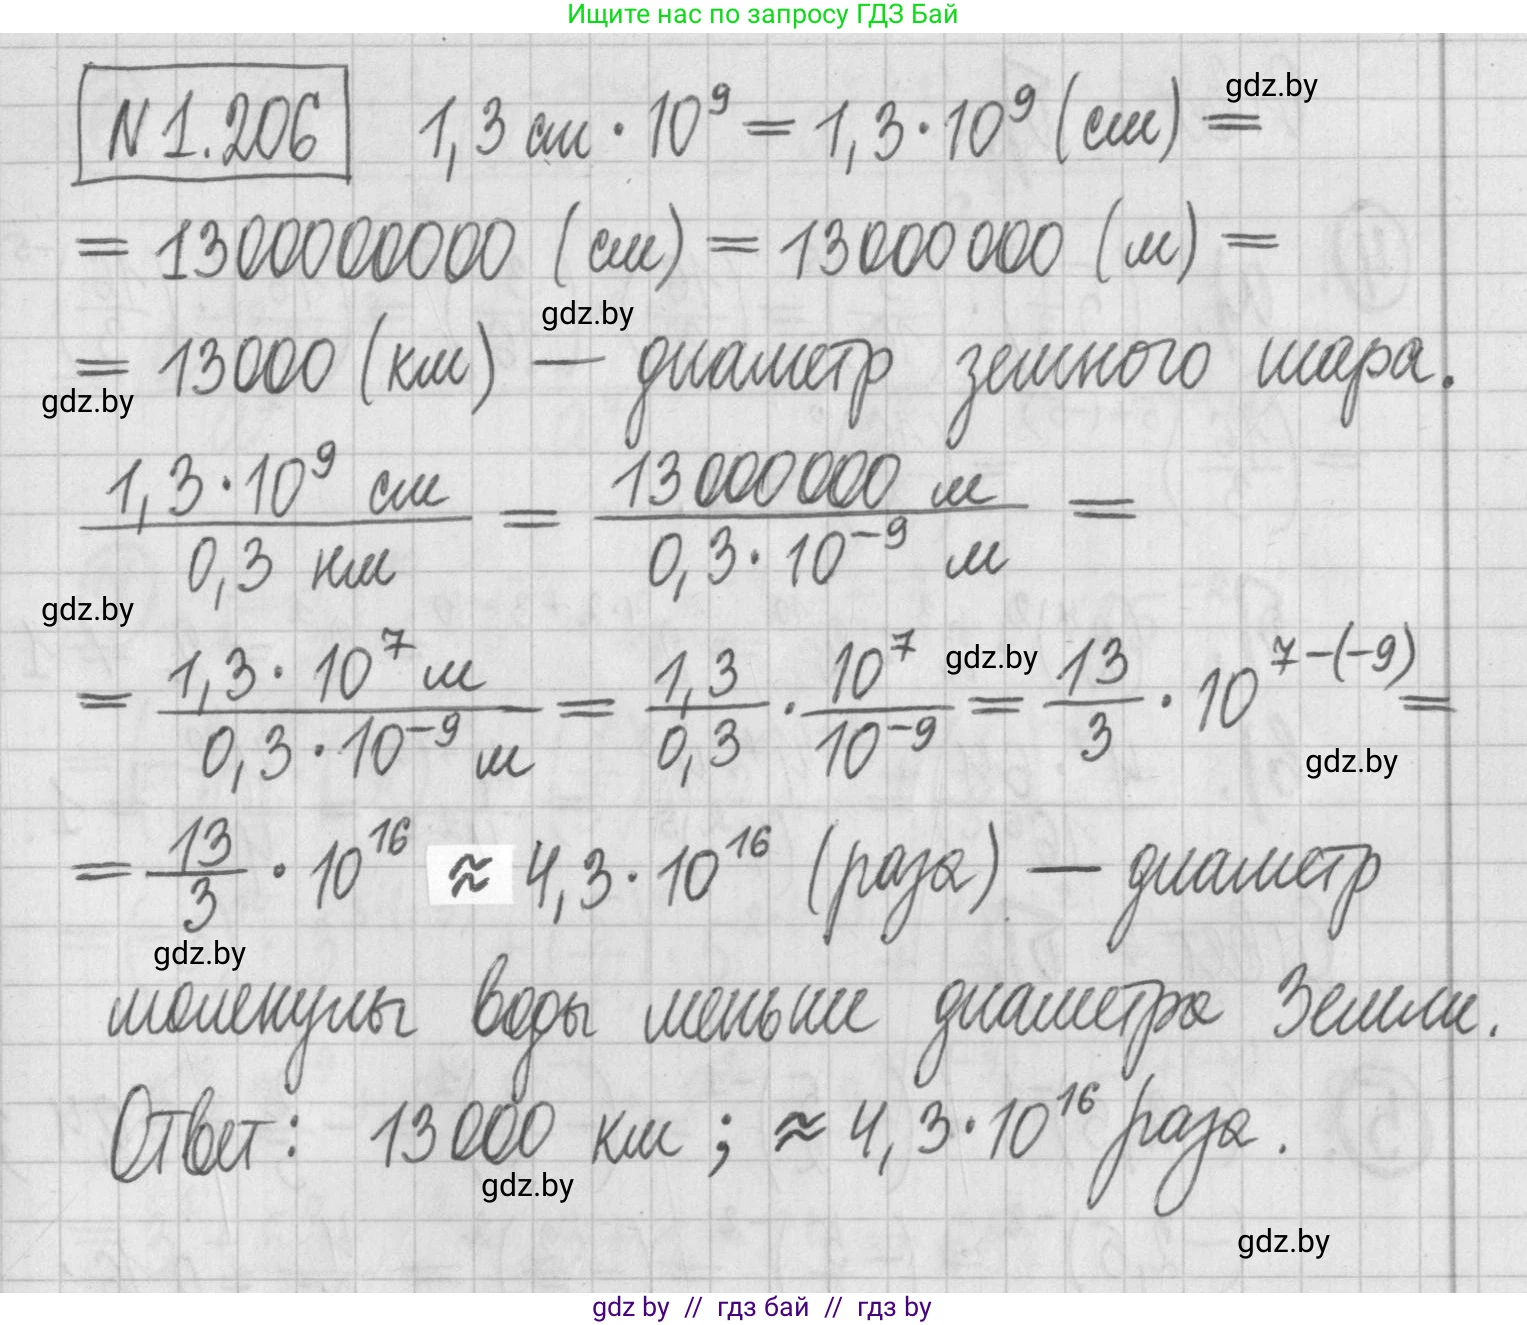 Ищите нас по запросу ГДЗ Бай
N 1.206 1,3 см · 10⁹ = 1,3 · 10⁹ (см) =
gdz.by
= 1300000000 (см) = 13000000 (м) =
gdz.by
= 13000 (км) — диаметр земного шара.
gdz.by
1,3 · 10⁹ см / 0,3 нм = 13000000 м / 0,3 · 10⁻⁹ м =
gdz.by
= 1,3 · 10⁷ м / 0,3 · 10⁻⁹ м = 1,3 / 0,3 · 10⁷ / 10⁻⁹ = 13 / 3 · 10⁷⁻⁽⁻⁹⁾ =
gdz.by
gdz.by
= 13 / 3 · 10¹⁶ ≈ 4,3 · 10¹⁶ (раза) — диаметр
gdz.by
молекулы воды меньше диаметра Земли.
Ответ: 13000 км ; ≈ 4,3 · 10¹⁶ раза.
gdz.by
gdz.by
gdz by // гдз бай // гдз by